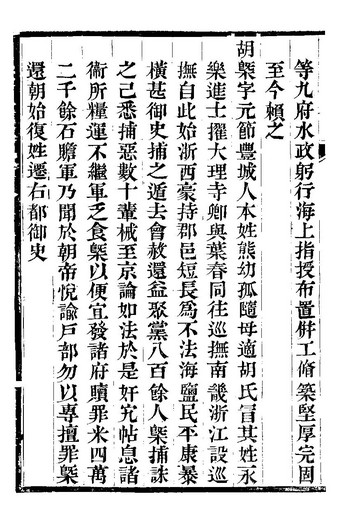 等九府水政躬行海上指授布置併工脩築堅厚完固
至今賴之
胡槩字元節豐城人本姓熊幼孤隨母適胡氏冒其姓永
樂進士擢大理寺卿與葉春同往巡撫南畿浙江設巡
撫自此始浙西豪持郡邑短長爲不法海鹽民平康暴
橫甚御史捕之遁去會赦還益聚黨八百餘人槩捕誅
之已悉捕惡數十輩械至京論如法於是奸宄帖息諸
衞所糧運不繼軍乏食槩以便宜發諸府贖罪米四萬
二千餘石贍軍乃聞於朝帝悅諭戶部勿以專擅罪槩
還朝始復姓遷右都御史